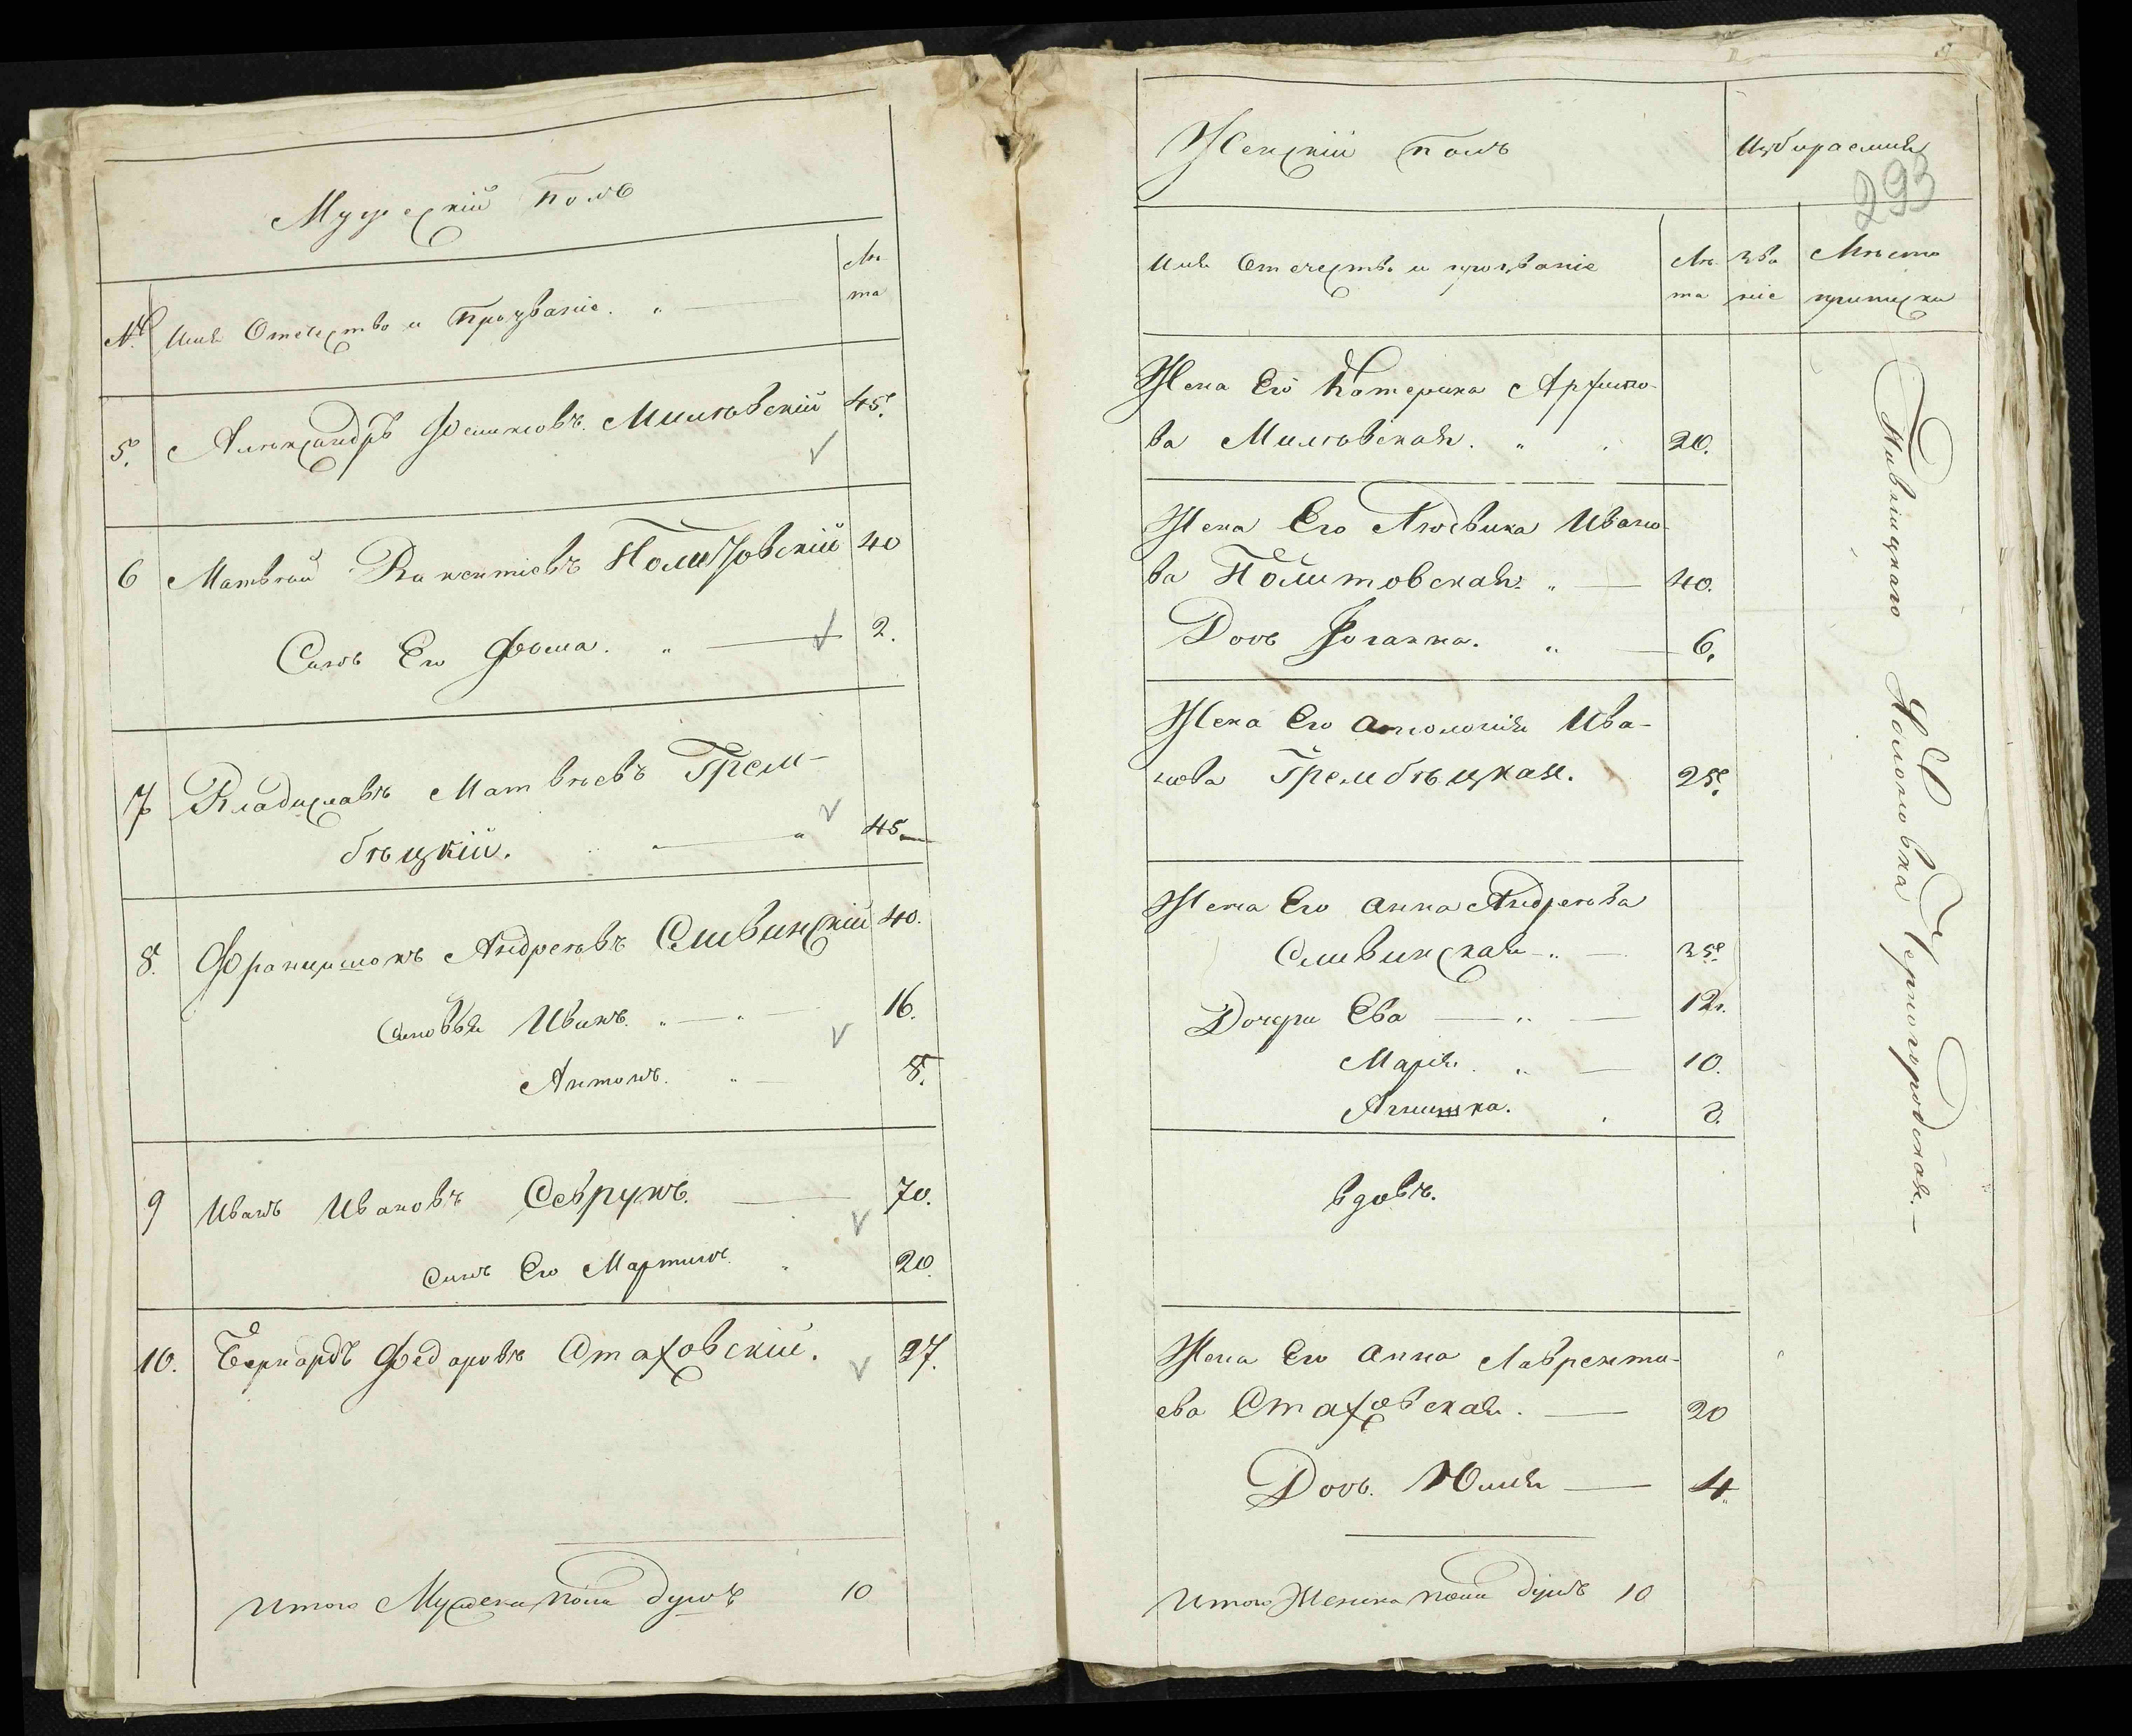 Мужескій полъ
№ Имя Отечество и Прозваніе.
Лѣ
та
5. Александръ Фелиціовъ Милевскій 45.
6 Матвѣй Викентіевъ Политовскій 40
Сынъ Его Фома. 2.
7 Владиславъ Матвѣевъ Грем-
бѣцкій. 45
8. Францишокъ Андреевъ Сливинскій 40.
Сыновья Иванъ. 16.
Антонъ. 8.
9 Иванъ Ивановъ Севрукъ. 70.
Сынъ Его Мартинъ. 20.
10. Бернардъ Федоровъ Стаховскій. 27.
Итого Мужска пола душъ 10
Женскій полъ
Избираемыя
293
Имя Отечество и прозваніе
Лѣ
та
Зва
ніе
Мѣсто
приписки
Жена Его Катерина
ва Милевская. 20.
Жена Его Людвика Ивано-
ва Политовская. 40.
Дочь Іоганна. 6.
Жена Его Аполонія Ива-
нова Грембѣцкая. 25.
Жена Его Анна Андреева
Сливинская 35.
Дочери Ева 12.
Марія. 10.
Агнишка. 8.
вдовъ.
Жена Его Анна Лавренти-
ева Стаховская. 20
Дочь. Юлія 4.
Итого Женска пола душъ 10